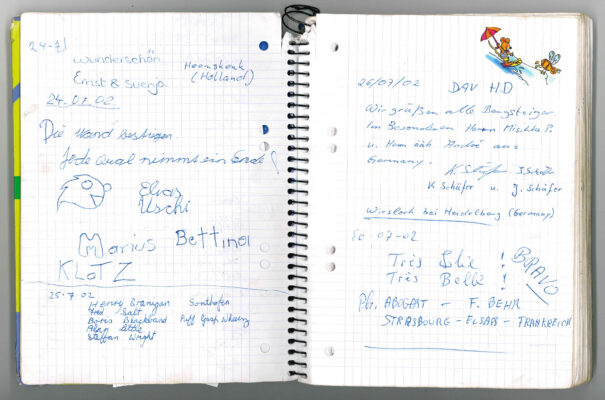 24-7
wunderschön
Ernst & Svenja
Heemskerk
(Holland)
24.07.02
Die Wand bestiegen.
Jede Qual nimmt ein Ende!
Elias
Uschi
Marius Bettina
KLOTZ
25.7.02
Henry Branigan Sonthofen
Fred Salt
Boris Blackband Puff Gash Wheezy
Alan Little
Steffan Wright
26/07/02 DAV HD
Wir grüßen alle Bergsteiger
Im Besonderen Herrn Mischka P.
u. Herrn André aus
Germany.
K. Schäfer J. Schäfer
K Schäfer u. J. Schäfer
Wiesloch bei Heidelberg (Germany)
-07-02
Très Jolie !
Très Belle !
BRAVO
ADOGAST - F. BEHR
STRASBOURG - ELSASS - FRANKREICH